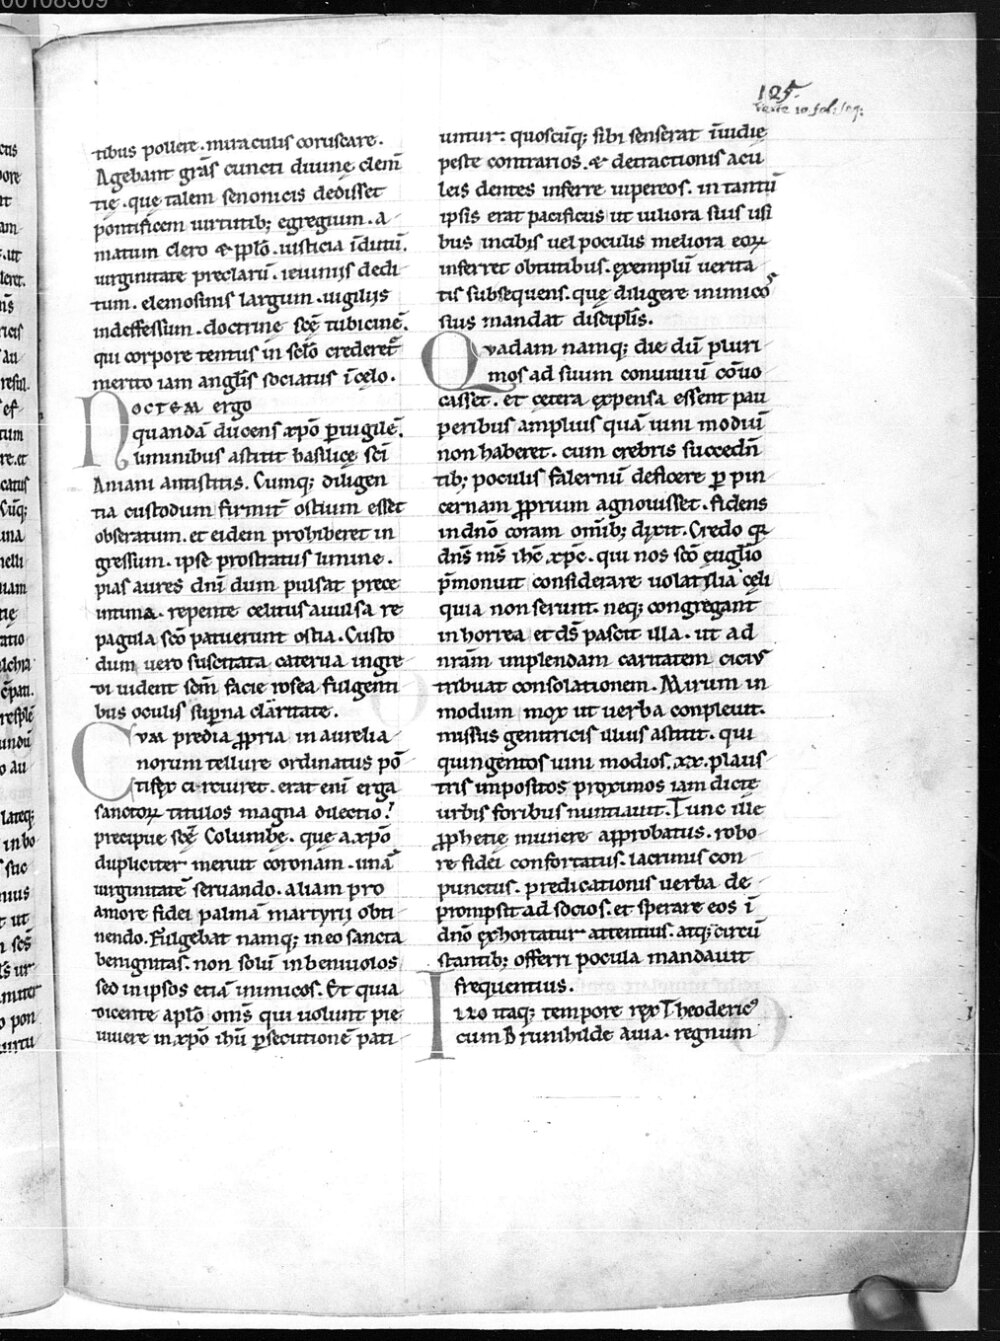 00108309
125.
tibus pollere. miraculis coruscare.
Agebant grãs cuncti diuinę clem̃
tię. que talem senonicis dedisset
pontificem uirtutib; egregium. a
matum clero & ꝓplõ. iusticia ĩdutũ.
uirginitate preclarũ. ieiuniis dedi
tum. elemosinis largum. uigiliis
indefessum. doctrinę scę̃ tubicinẽ.
qui corpore tentus in sclõ crederet᷑
merito iam angl̃is sociatus ĩ cęlo.
Noctem ergo
quandã ducens xp̃o ꝑuigilẽ.
luminibus astitit basilicę sc̃i
Aniani antistitis. Cumq; diligen
tia custodum firmit̃ ostium esset
obseratum. et eidem prohiberet in
gressum. ipse prostratus limine.
pias aures dñi dum pulsat prece
intima. repente celitus auulsa re
pagula scõ patuerunt ostia. Custo
dum uero suscitata caterua ingre
di uident sc̃m facie rosea fulgenti
bus oculis sup̃na claritate.
Cum predia ꝓpria in aurelia
norum tellure ordinatus põ
tifex ci rcuiret. erat eni᷑ erga
sanctoꝝ titulos magna dilectio.
precipue scę̃ Columbę. que a xp̃o
dupliciter meruit coronam. unã
uirginitatẽ seruando. aliam pro
amore fidei palmã martyrii obti
nendo. Fulgebat namq; in eo sancta
benignitas. non solũ in beniuolos
sed in ipsos etiã inimicos. Et quia
dicente apl̃o om̃s qui uolunt pie
uiuere in xp̃o ihũ ꝑsecutionẽ pati
untur: quoscũq; sibi senserat ĩuidię
peste contrarios. & detractionis acu
leis dentes inferre uipereos. in tantũ
ipsis erat pacificus ut uiliora suis usi
bus in cibis uel poculis meliora eoꝝ
inferret obtutibus. exemplũ uerita
tis subsequens. quę diligere inimicos
suis mandat discipl̃is.
Quadam namq; die dũ pluri
mos ad suum conuiuiũ cõuo
casset. et cetera expensa essent pau
peribus amplius quã uini modiũ
non haberet. cum crebris succedñ
tib; poculis falernũ deficere ꝑ pin
cernam ꝓprium agnouisset. fidens
in dño coram om̃ib; dixit. Credo qđ
dñs m̃s ihẽ xp̃e. qui nos scõ euglĩo
p̃monuit considerare uolatilia cęli
quia non serunt. neq; congregant
in horrea et dš pascit illa. ut ad
nrãm implendam caritatem citius
tribuat consolationem. Mirum in
modum mox ut uerba conpleuit.
missus genitricis illius astitit. qui
quingentos uini modios. xx. plaus
tris inpositos proximos iam dictę
urbis foribus nuntiauit. Tunc ille
ꝓphetię munere approbatus. robo
re fidei confortatus. lacrimis con
punctus. predicationis uerba de
prompsit ad socios. et sperare eos ĩ
dño exhortatur attentius. atq; circũ
stantib; offerri pocula mandauit
frequentius.
Illo itaq; tempore rex Theoderic᷒
cum Brunihilde auia. regnum